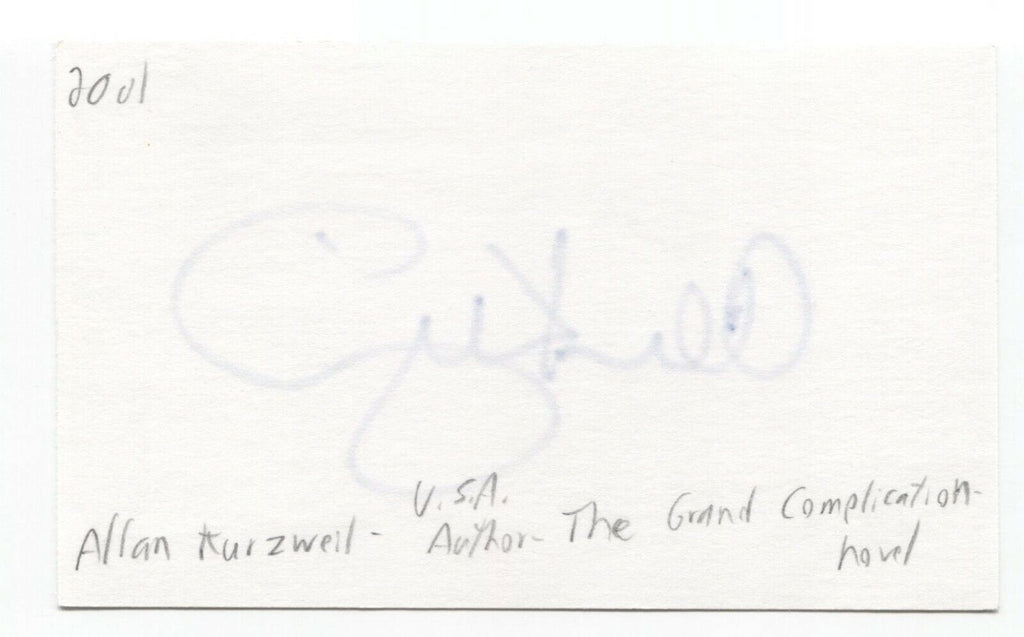 2001
U.S.A.
Allan Kurzweil - Author - The Grand Complication -
novel